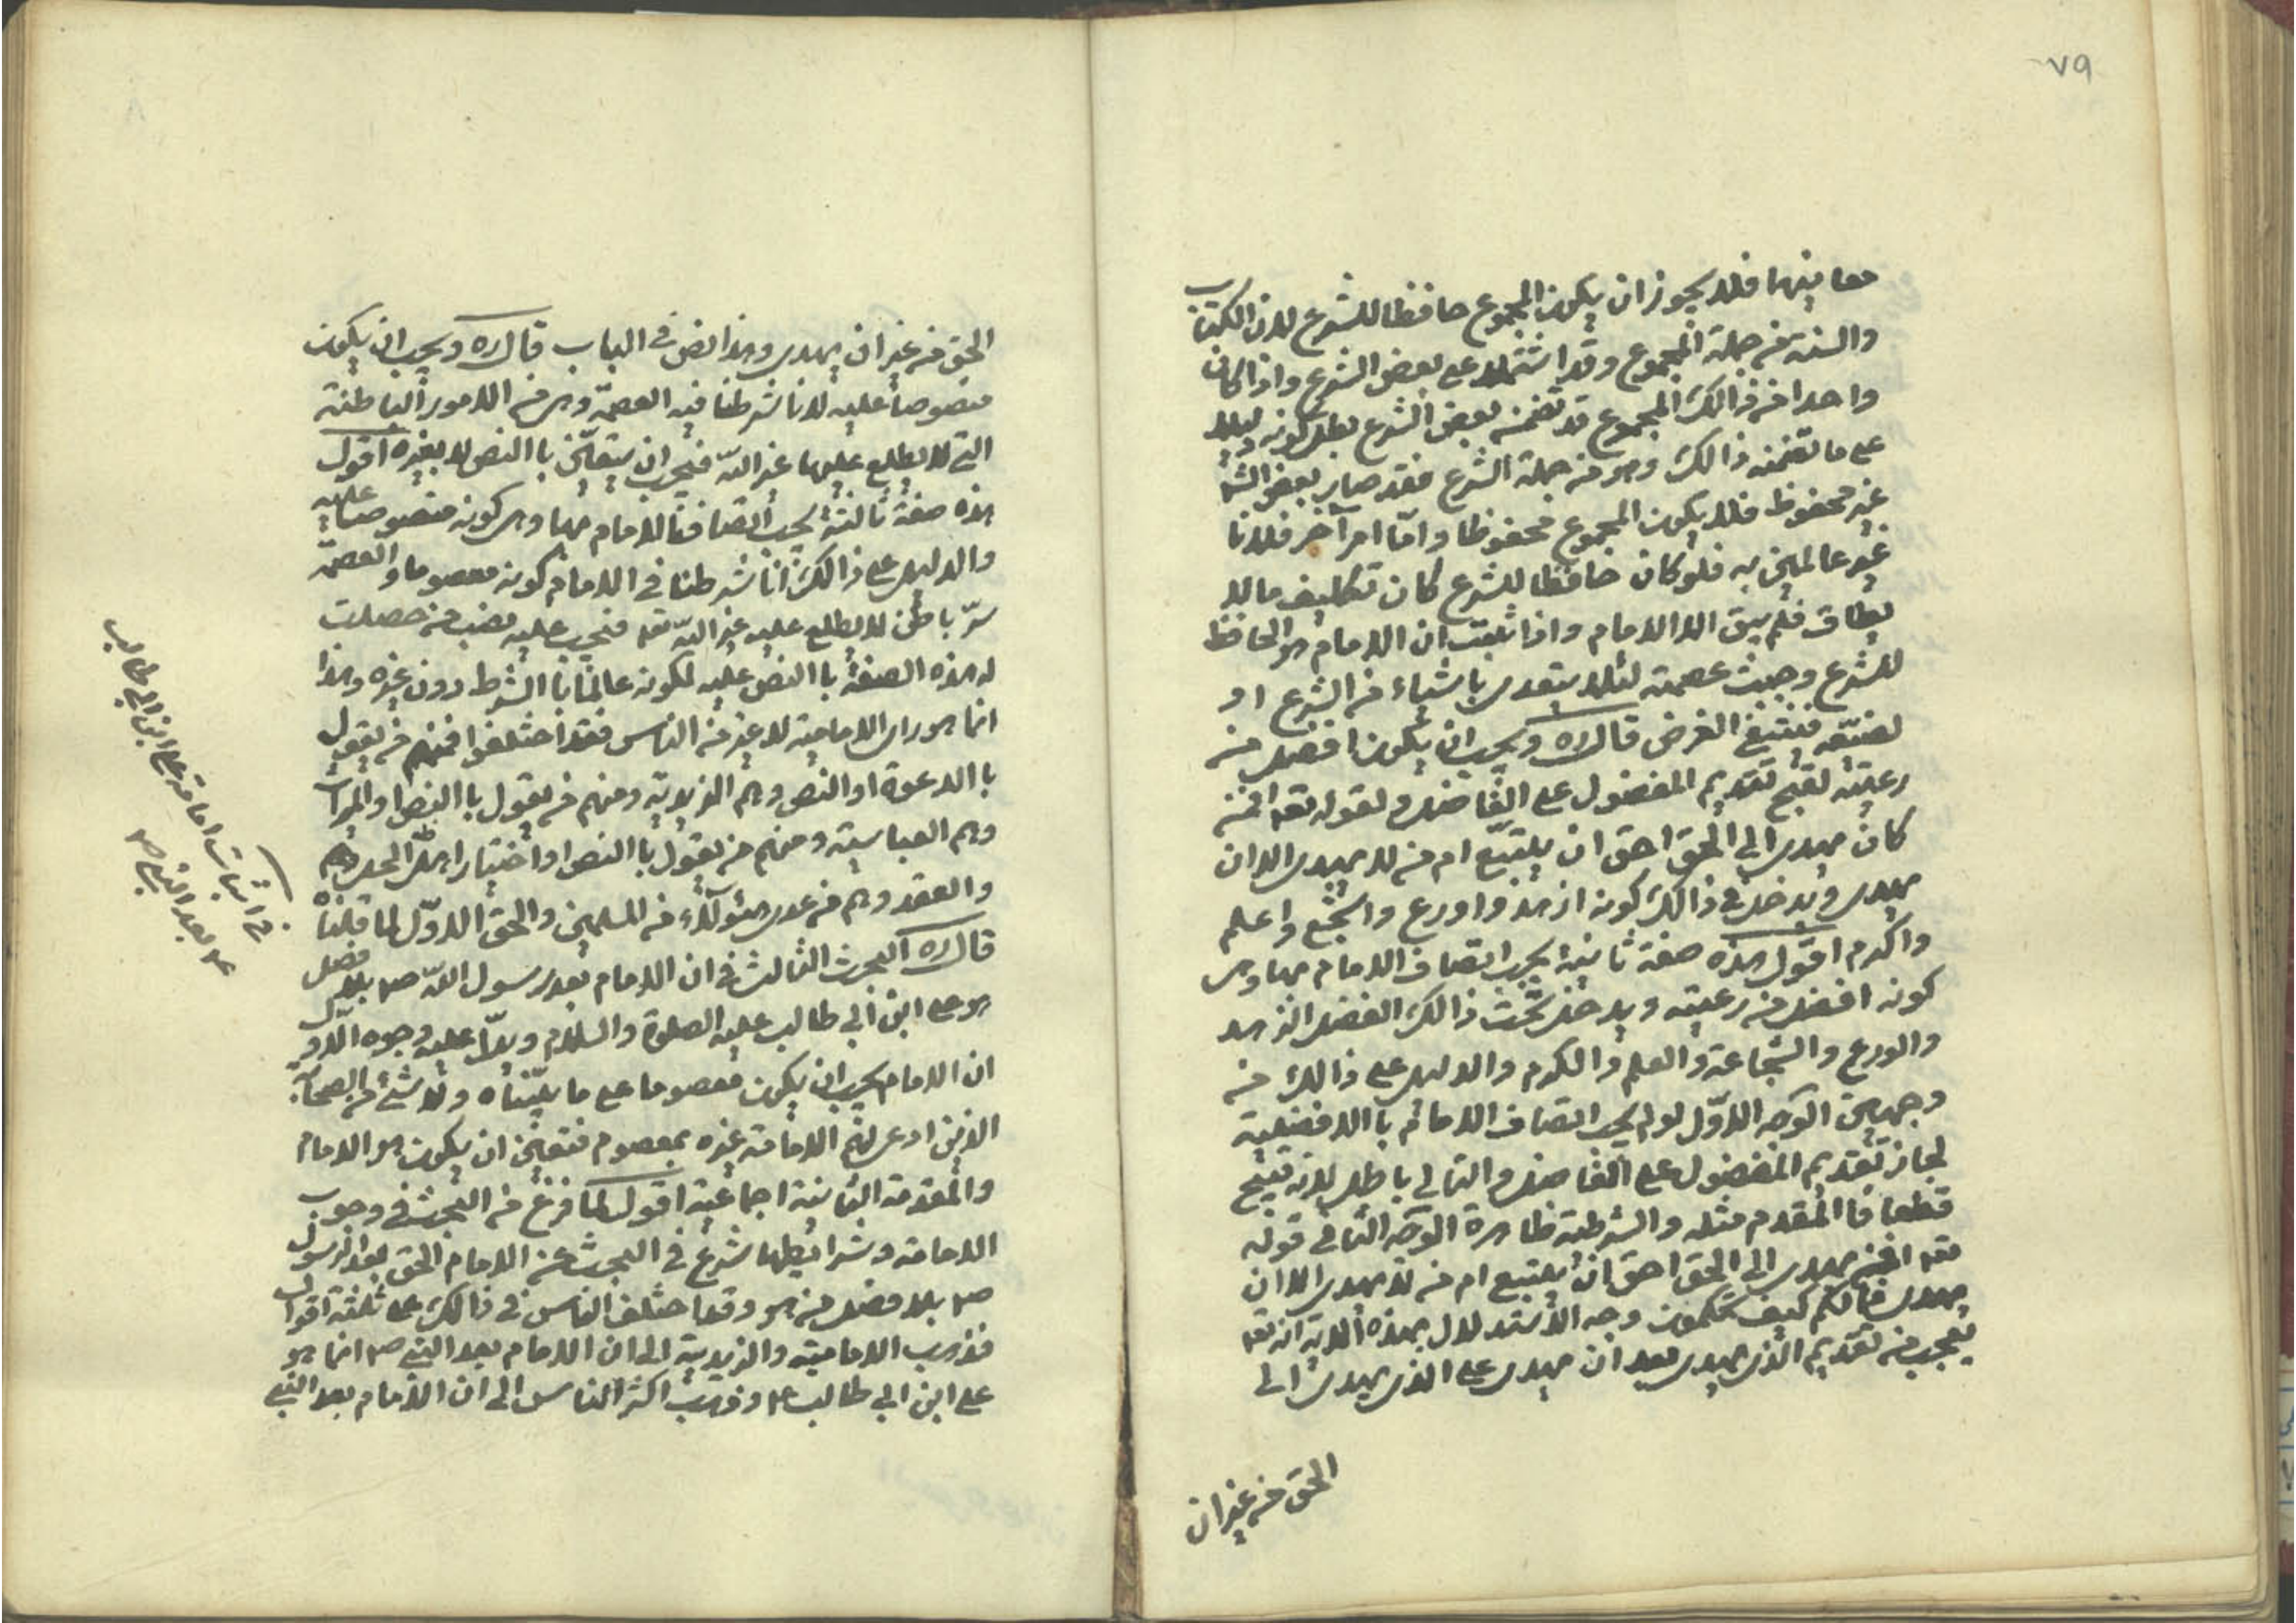 ٧٩
معا بينهما فلا يجوز ان يكون المجموع حافظا للشرع لان الكتاب
والسنة من جملة المجموع وقد اشتملا على بعض الشرع واذا كان
واحدا من ذالك المجموع قد تضمنه بعض الشرع بطل كونه دليلا
على ما تضمنه ذالك وهو من جملة الشرع فقد صار بعض الشرع
غير محفوظ فلا يكون المجموع محفوظا وامّا امر آخر فلانا
غير عالمين به فلو كان حافظا للشرع كان تكليف ما لا
يطاق فلم يبق الا الامام واذا ثبت ان الامام هو الحافظ
للشرع وجبت عصمته لئلا يتعدى باشياء من الشرع او
لضيّعه فينتفي الغرض قال ره ويجب ان يكون افضل من
رعيته لقبح تقديم المفضول على الفاضل ولقوله تعه افمن
كان يهدى الى الحق احق ان يتبّع ام من لا يهدى الا ان
يهدى ويدخل في ذالك كونه ازهد واورع واشجع واعلم
واكرم اقول هذه صفة ثانية يجب اتصاف الامام بها وهى
كونه افضل من رعيته ويدخل تحت ذالك الفضل الزهد
والورع والشجاعة والعلم والكرم والدليل على ذالك من
وجهين الوجه الاوّل لو لم يجب اتصاف الامام باالافضلية
لجاز تقديم المفضول على الفاضل والتالي باطل لانه قبيح
قطعا فا المقدم مثله والشرطية ظاهرة الوجه الثاني قوله
تعه افمن يهدى الى الحق احق ان يتبع ام من لا يهدى الا ان
يهدى فمالكم كيف تحكمون وجه الاستدلال بهذه الاية انه تعه
تعجب من تقديم الذى يهدى بعد ان يهدى على الذى يهدى الى
الحق من غير ان
الحق من غير ان يهدى وهذا نص في الباب قال ره ويجب ان يكون
منصوصا عليه لانا شرطنا فيه العصمة وهى من الامور الباطنة
التي لا يطلع عليها غير اللّه فيجب ان يتعيّن باالنص لا بغيره اقول
هذه صفة ثالثة يجب اتصاف الامام بها وهى كونه منصوصا عليه
والدليل على ذالك انا شرطنا في الامام كونه معصوما والعصمة
سرّ باطن لا يطلع عليه غير اللّه تعه فيجب عليه نصب من حصلت
له هذه الصفة باالنص عليه لكونه عالما باالشرط دون غيره وهذا
انما هو راى الامامية لا غير من الناس فقد اختلفوا فمنهم من يقول
باالدعوة او النص وهم الزيدية ومنهم من يقول باالنص او الميراث
وهم العباسية ومنهم من يقول باالنص او اختيار اهل الحل
والعقد وهم من عدى هئولآء من المسلمين والحق الاوّل لما قلناه
قال ره البحث الثالث في ان الامام بعد رسول اللّه ص بلا فصل
هو على ابن ابي طالب عليه الصلوة والسلام ويدلّ عليه وجوه الاول
ان الامام يجب ان يكون معصوما على ما بيّنّاه ولا شئ من الصحابة
الذين ادعى لهم الامامة غيره بمعصوم فتعيّن ان يكون هو الامام
والمقدمة الثانية اجماعية اقول لما فرغ من البحث في وجوب
الامامة وشرائطها شرع في البحث عن الامام الحق بعد الرسول
ص بلا فصل من هو وقد اختلف الناس في ذالك على ثلثة اقوال
فذهب الامامية والزيدية الى ان الامام بعد النبي ص انما هو
على ابن ابي طالب ع وذهب اكثر الناس الى ان الامام بعد النبي
في اثبات امامة على ابن ابي طالب
ع بعد النبي ص